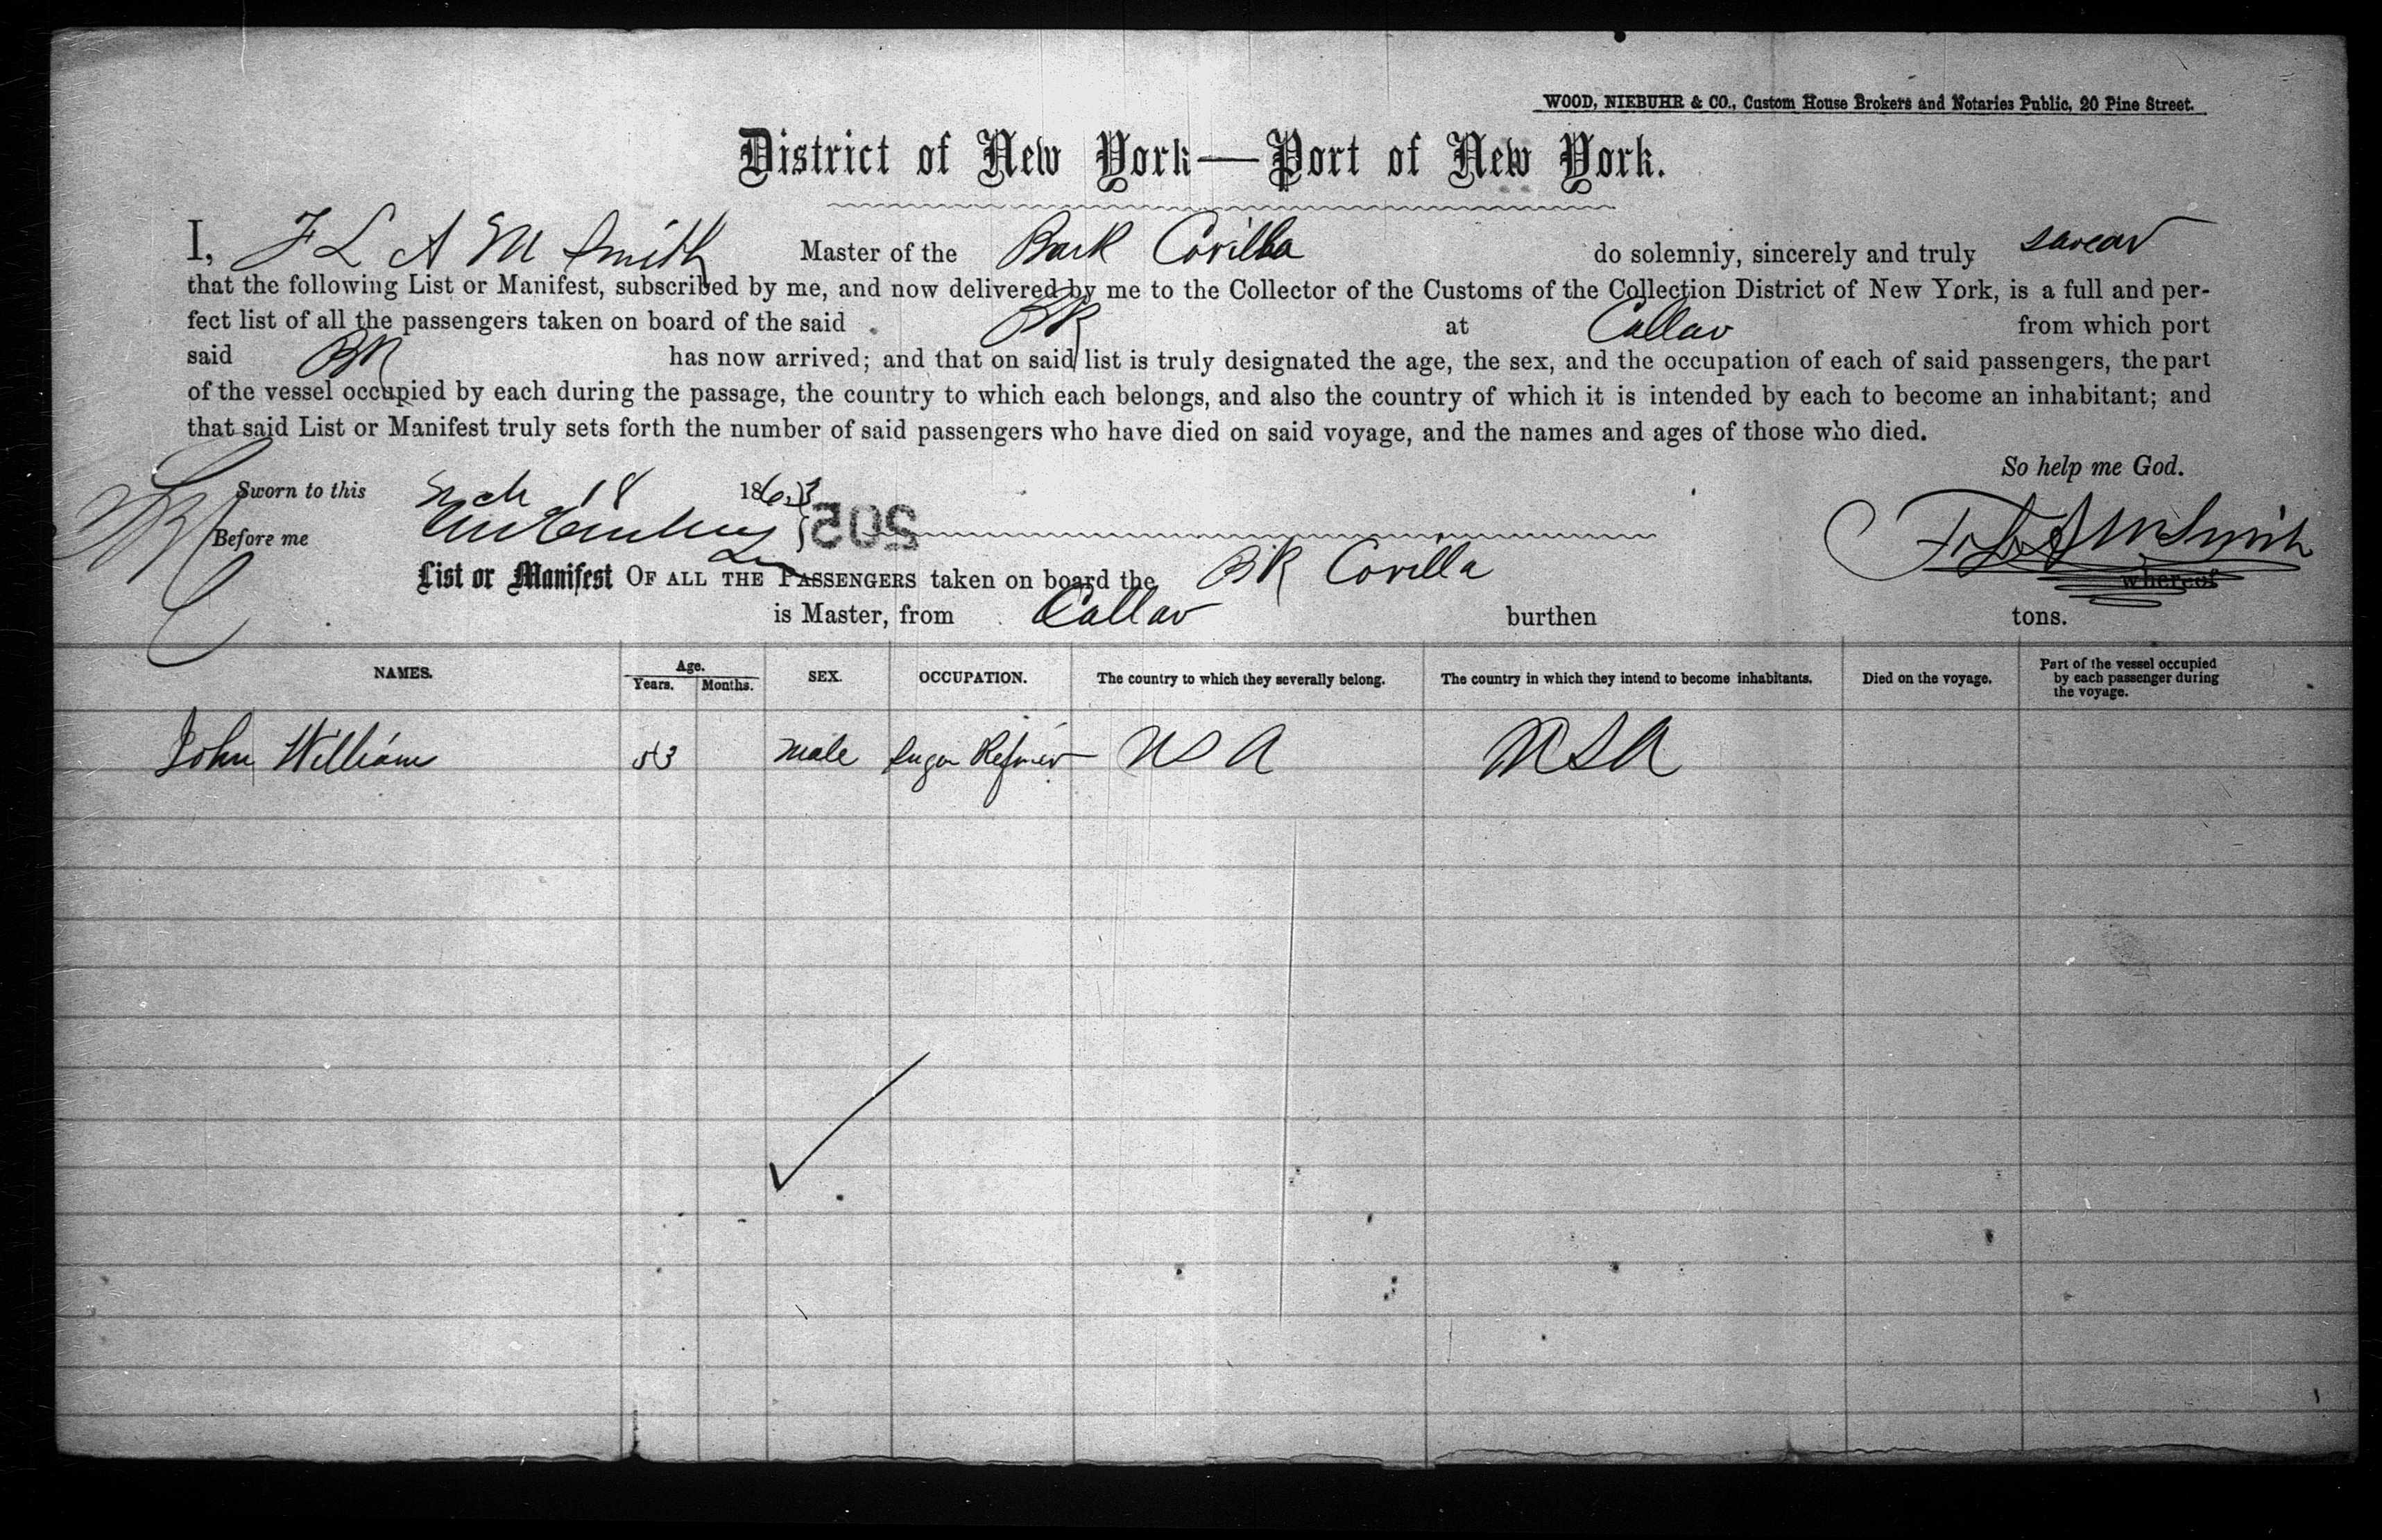 WOOD, NIEBUHR & CO., Custom House Brokers and Notaries Public, 20 Pine Street.
District of New York—Port of New York.
I, F L A M Smith Master of the Bark Corilla do solemnly, sincerely and truly swear
that the following List or Manifest, subscribed by me, and now delivered by me to the Collector of the Customs of the Collection District of New York, is a full and per-
fect list of all the passengers taken on board of the said BK at Callao from which port
said BK has now arrived; and that on said list is truly designated the age, the sex, and the occupation of each of said passengers, the part
of the vessel occupied by each during the passage, the country to which each belongs, and also the country of which it is intended by each to become an inhabitant; and
that said List or Manifest truly sets forth the number of said passengers who have died on said voyage, and the names and ages of those who died.
So help me God.
Sworn to this Mch 18 1863
Before me 205 F L A M Smith
List or Manifest OF ALL THE PASSENGERS taken on board the BK Corilla whereof
is Master, from Callao burthen tons.
NAMES. Age. Years. Months. SEX. OCCUPATION. The country to which they severally belong. The country in which they intend to become inhabitants. Died on the voyage. Part of the vessel occupied by each passenger during the voyage.
John William 53 Male Sugar Refiner U S A U S A